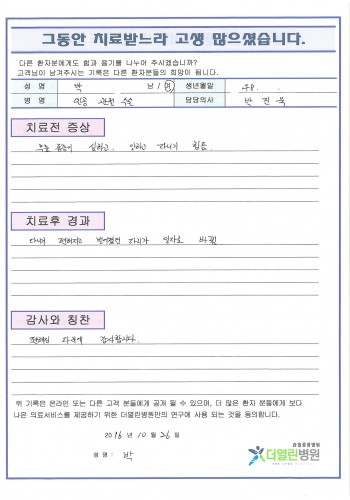 그동안 치료받느라 고생 많으셨습니다.
다른 환자분에게도 힘과 용기를 나누어 주시겠습니까?
고객님이 남겨주시는 기록은 다른 환자분들의 희망이 됩니다.
성 명 박 남 / 여 생년월일 48.
병 명 인공 관절 수술 담당의사 반 진 욱
치료전 증상
무릎 통증이 심하고, 걷고 다니기 힘듬
치료후 경과
다리가 펴지고 벌어졌던 다리가 일자로 바뀜
감사와 칭찬
감사합니다.
위 기록은 온라인 또는 다른 고객 분들에게 공개 될 수 있으며, 더 많은 환자 분들에게 보다
나은 의료서비스를 제공하기 위한 더열린병원만의 연구에 사용 되는 것을 동의합니다.
2016 년 10 월 26 일
성 명 : 박
관절중점병원
더열린병원